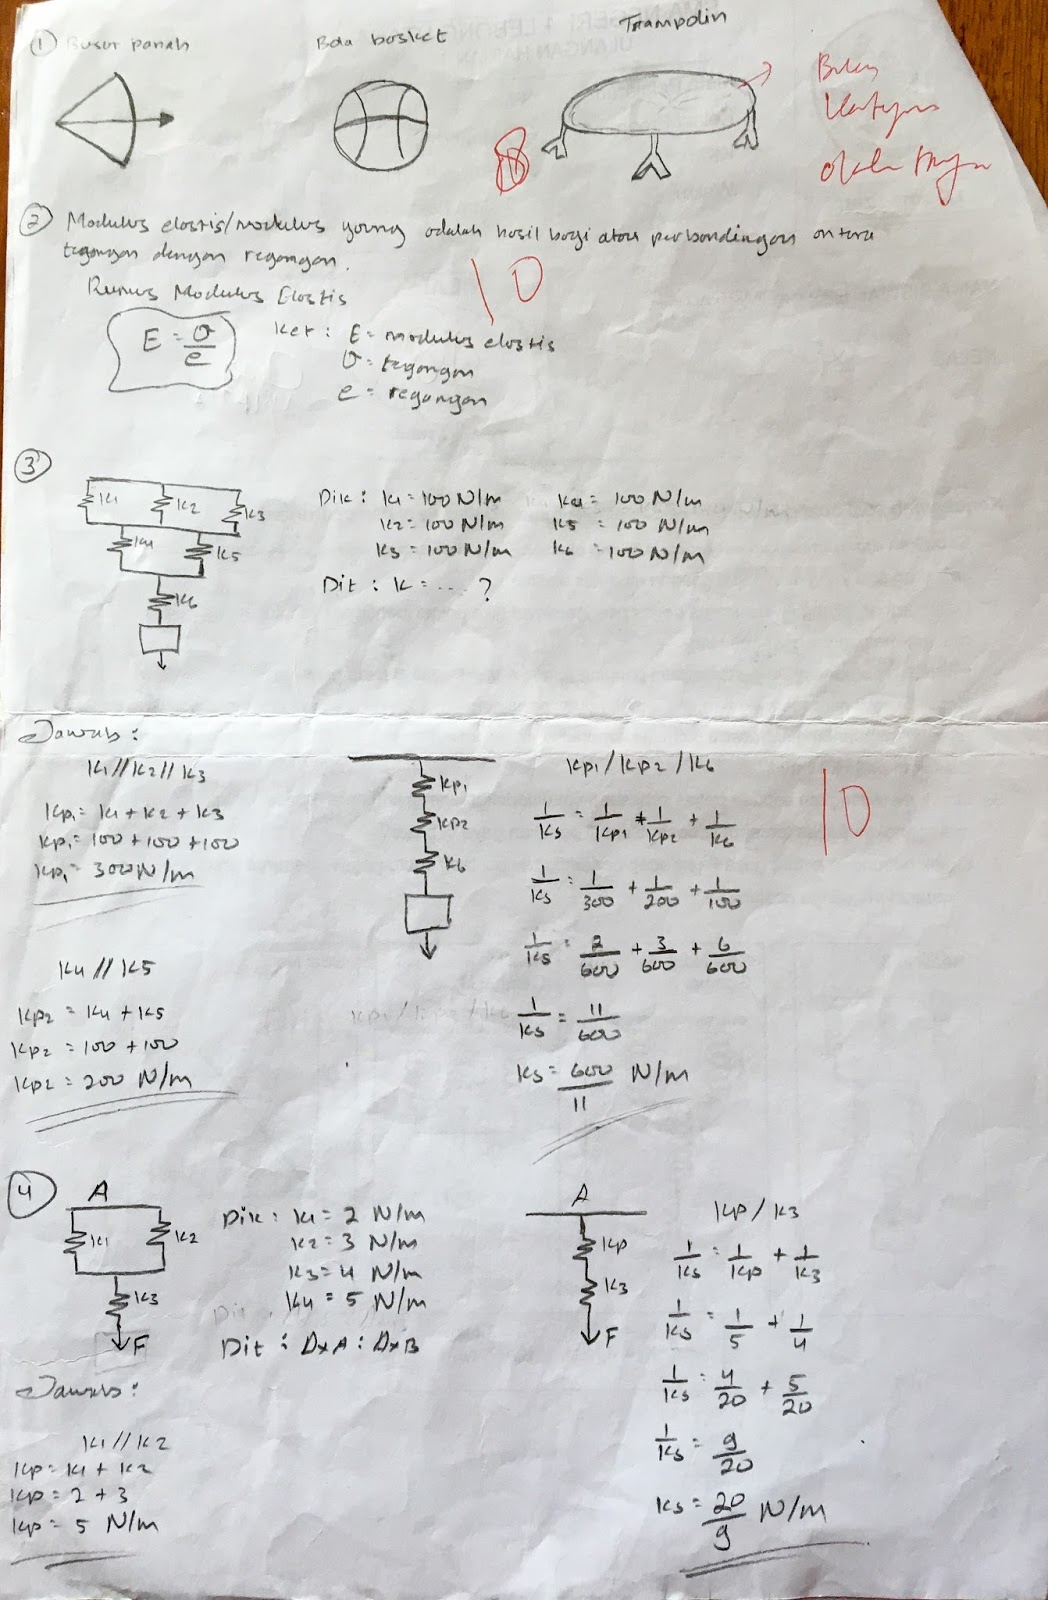 1 Busur panah Bola basket Trampolin
Bukan
10
2 Modulus elastis/modulus young adalah hasil bagi atau perbandingan antara
tegangan dengan regangan.
Rumus Modulus Elastis
E = σ/e
Ket : E = modulus elastis
σ = tegangan
e = regangan
3
K1 K2 K3
K4 K5
K6
Dik : K1 = 100 N/m K4 = 100 N/m
K2 = 100 N/m K5 = 100 N/m
K3 = 100 N/m K6 = 100 N/m
Dit : K = .... ?
Jawab :
K1 // K2 // K3
Kp1 = K1 + K2 + K3
Kp1 = 100 + 100 + 100
Kp1 = 300 N/m
K4 // K5
Kp2 = K4 + K5
Kp2 = 100 + 100
Kp2 = 200 N/m
Kp1
Kp2
K6
Kp1 / Kp2 / K6
1/Ks = 1/Kp1 + 1/Kp2 + 1/K6
1/Ks = 1/300 + 1/200 + 1/100
1/Ks = 2/600 + 3/600 + 6/600
1/Ks = 11/600
Ks = 600/11 N/m
10
4 A
K1 K2
K3
F
Dik : K1 = 2 N/m
K2 = 3 N/m
K3 = 4 N/m
K4 = 5 N/m
Dit : ΔxA : ΔxB
Jawab :
K1 // K2
Kp = K1 + K2
Kp = 2 + 3
Kp = 5 N/m
A
Kp
K3
F
Kp / K3
1/Ks = 1/Kp + 1/K3
1/Ks = 1/5 + 1/4
1/Ks = 4/20 + 5/20
1/Ks = 9/20
Ks = 20/9 N/m